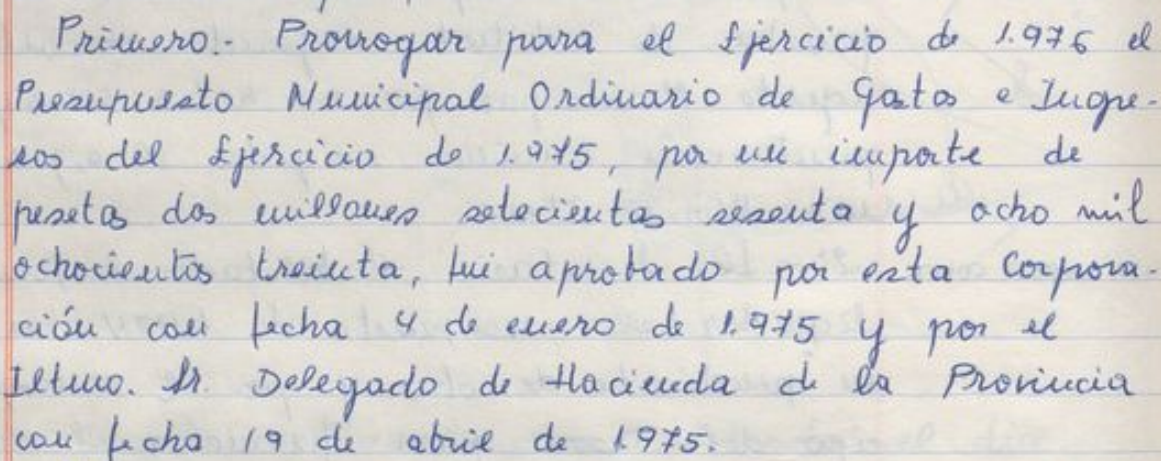 Primero.- Prorrogar para el Ejercicio de 1.976 el
Presupuesto Municipal Ordinario de Gastos e Ingre-
sos del Ejercicio de 1.975, por un importe de
pesetas dos millones setecientas sesenta y ocho mil
ochocientos treinta, fui aprobado por esta Corpora-
ción con fecha 4 de enero de 1.975 y por el
Iltmo. Sr. Delegado de Hacienda de la Provincia
con fecha 19 de abril de 1.975.